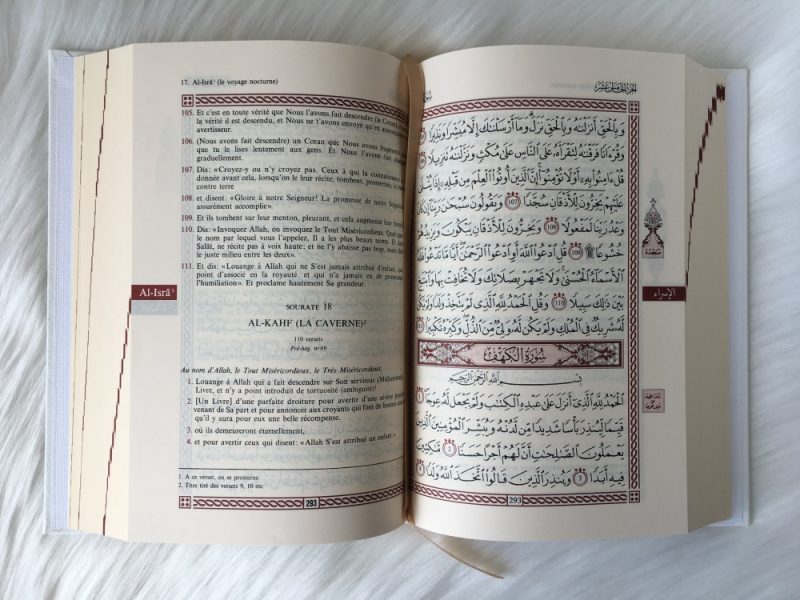 17. Al-Isrâ' (le voyage nocturne)
105. Et c'est en toute vérité que Nous l'avons fait descendre (le Coran), et
la vérité il est descendu, et Nous ne t'avons envoyé qu'en
avertisseur.
106. (Nous avons fait descendre) un Coran que Nous avons
que tu le lises lentement aux gens. Et Nous l'avons fait
graduellement.
107. Dis: «Croyez-y ou n'y croyez pas. Ceux à qui la connaissance
donnée avant cela, lorsqu'on le leur récite, tombent, prosternés, le
contre terre
108. et disent: «Gloire à notre Seigneur! La promesse de notre
assurément accomplie».
109. Et ils tombent sur leur menton, pleurant, et cela augmente leur
110. Dis: «Invoquez Allah, ou invoquez le Tout Miséricordieux. Quel que
le nom par lequel vous l'appelez, Il a les plus beaux noms. Et
Ṣalāt, ne récite pas à voix haute; et ne l'y abaisse pas trop, mais
le juste milieu entre les deux».
111. Et dis: «Louange à Allah qui ne S'est jamais attribué d'enfant,
point d'associé en la royauté et qui n'a jamais eu de
l'humiliation». Et proclame hautement Sa grandeur.
Al-Isrâ'
SOURATE 18
AL-KAHF (LA CAVERNE)²
110 versets
Pré-hég. n° 69
Au nom d'Allah, le Tout Miséricordieux, le Très Miséricordieux.
1. Louange à Allah qui a fait descendre sur Son serviteur
Livre, et n'y a point introduit de tortuosité (ambiguïté)!
2. [Un Livre] d'une parfaite droiture pour avertir d'une sévère
venant de Sa part et pour annoncer aux croyants qui font de bonnes
qu'il y aura pour eux une belle récompense.
3. où ils demeureront éternellement,
4. et pour avertir ceux qui disent: «Allah S'est attribué un enfant.»
1 A ce verset, on se prosterne.
2. Titre tiré des versets 9, 10 etc.
293
وَبِٱلْحَقِّ أَنزَلْنَٰهُ وَبِٱلْحَقِّ نَزَلَ وَمَآ أَرْسَلْنَٰكَ إِلَّا مُبَشِّرًا وَنَذِيرًا
وَقُرْءَانًا فَرَقْنَٰهُ لِتَقْرَأَهُۥ عَلَى ٱلنَّاسِ عَلَىٰ مُكْثٍ وَنَزَّلْنَٰهُ تَنزِيلًا
قُلْ ءَامِنُوا۟ بِهِۦٓ أَوْ لَا تُؤْمِنُوٓا۟ إِنَّ ٱلَّذِينَ أُوتُوا۟ ٱلْعِلْمَ مِن قَبْلِهِۦٓ إِذَا يُتْلَىٰ
عَلَيْهِمْ يَخِرُّونَ لِلْأَذْقَانِ سُجَّدًا ١٠٧ وَيَقُولُونَ سُبْحَٰنَ رَبِّنَآ إِن كَانَ
وَعْدُ رَبِّنَا لَمَفْعُولًا ١٠٨ وَيَخِرُّونَ لِلْأَذْقَانِ يَبْكُونَ وَيَزِيدُهُمْ
خُشُوعًا ۩ ١٠٩ قُلِ ٱدْعُوا۟ ٱللَّهَ أَوِ ٱدْعُوا۟ ٱلرَّحْمَٰنَ أَيًّا مَّا تَدْعُوا۟ فَلَهُ
ٱلْأَسْمَآءُ ٱلْحُسْنَىٰ وَلَا تَجْهَرْ بِصَلَاتِكَ وَلَا تُخَافِتْ بِهَا وَٱبْتَغِ
بَيْنَ ذَٰلِكَ سَبِيلًا ١١٠ وَقُلِ ٱلْحَمْدُ لِلَّهِ ٱلَّذِى لَمْ يَتَّخِذْ وَلَدًا وَلَمْ يَكُن
لَّهُۥ شَرِيكٌ فِى ٱلْمُلْكِ وَلَمْ يَكُن لَّهُۥ وَلِىٌّ مِّنَ ٱلذُّلِّ وَكَبِّرْهُ تَكْبِيرًا
سُورَةُ الكَهْفِ
بِسْمِ ٱللَّهِ ٱلرَّحْمَٰنِ ٱلرَّحِيمِ
ٱلْحَمْدُ لِلَّهِ ٱلَّذِىٓ أَنزَلَ عَلَىٰ عَبْدِهِ ٱلْكِتَٰبَ وَلَمْ يَجْعَل لَّهُۥ عِوَجَا
قَيِّمًا لِّيُنذِرَ بَأْسًا شَدِيدًا مِّن لَّدُنْهُ وَيُبَشِّرَ ٱلْمُؤْمِنِينَ ٱلَّذِينَ
يَعْمَلُونَ ٱلصَّٰلِحَٰتِ أَنَّ لَهُمْ أَجْرًا حَسَنًا ٢ مَّٰكِثِينَ
فِيهِ أَبَدًا ٣ وَيُنذِرَ ٱلَّذِينَ قَالُوا۟ ٱتَّخَذَ ٱللَّهُ وَلَدًا
293
سجدة
الإسراء